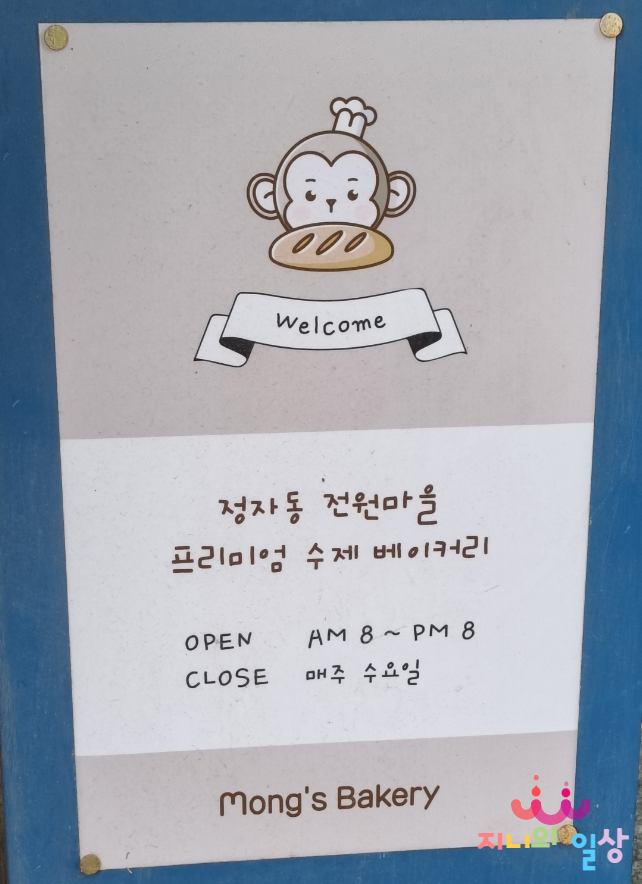 Welcome
정자동 전원마을
프리미엄 수제 베이커리
OPEN AM 8 ~ PM 8
CLOSE 매주 수요일
Mong's Bakery
지니의 일상